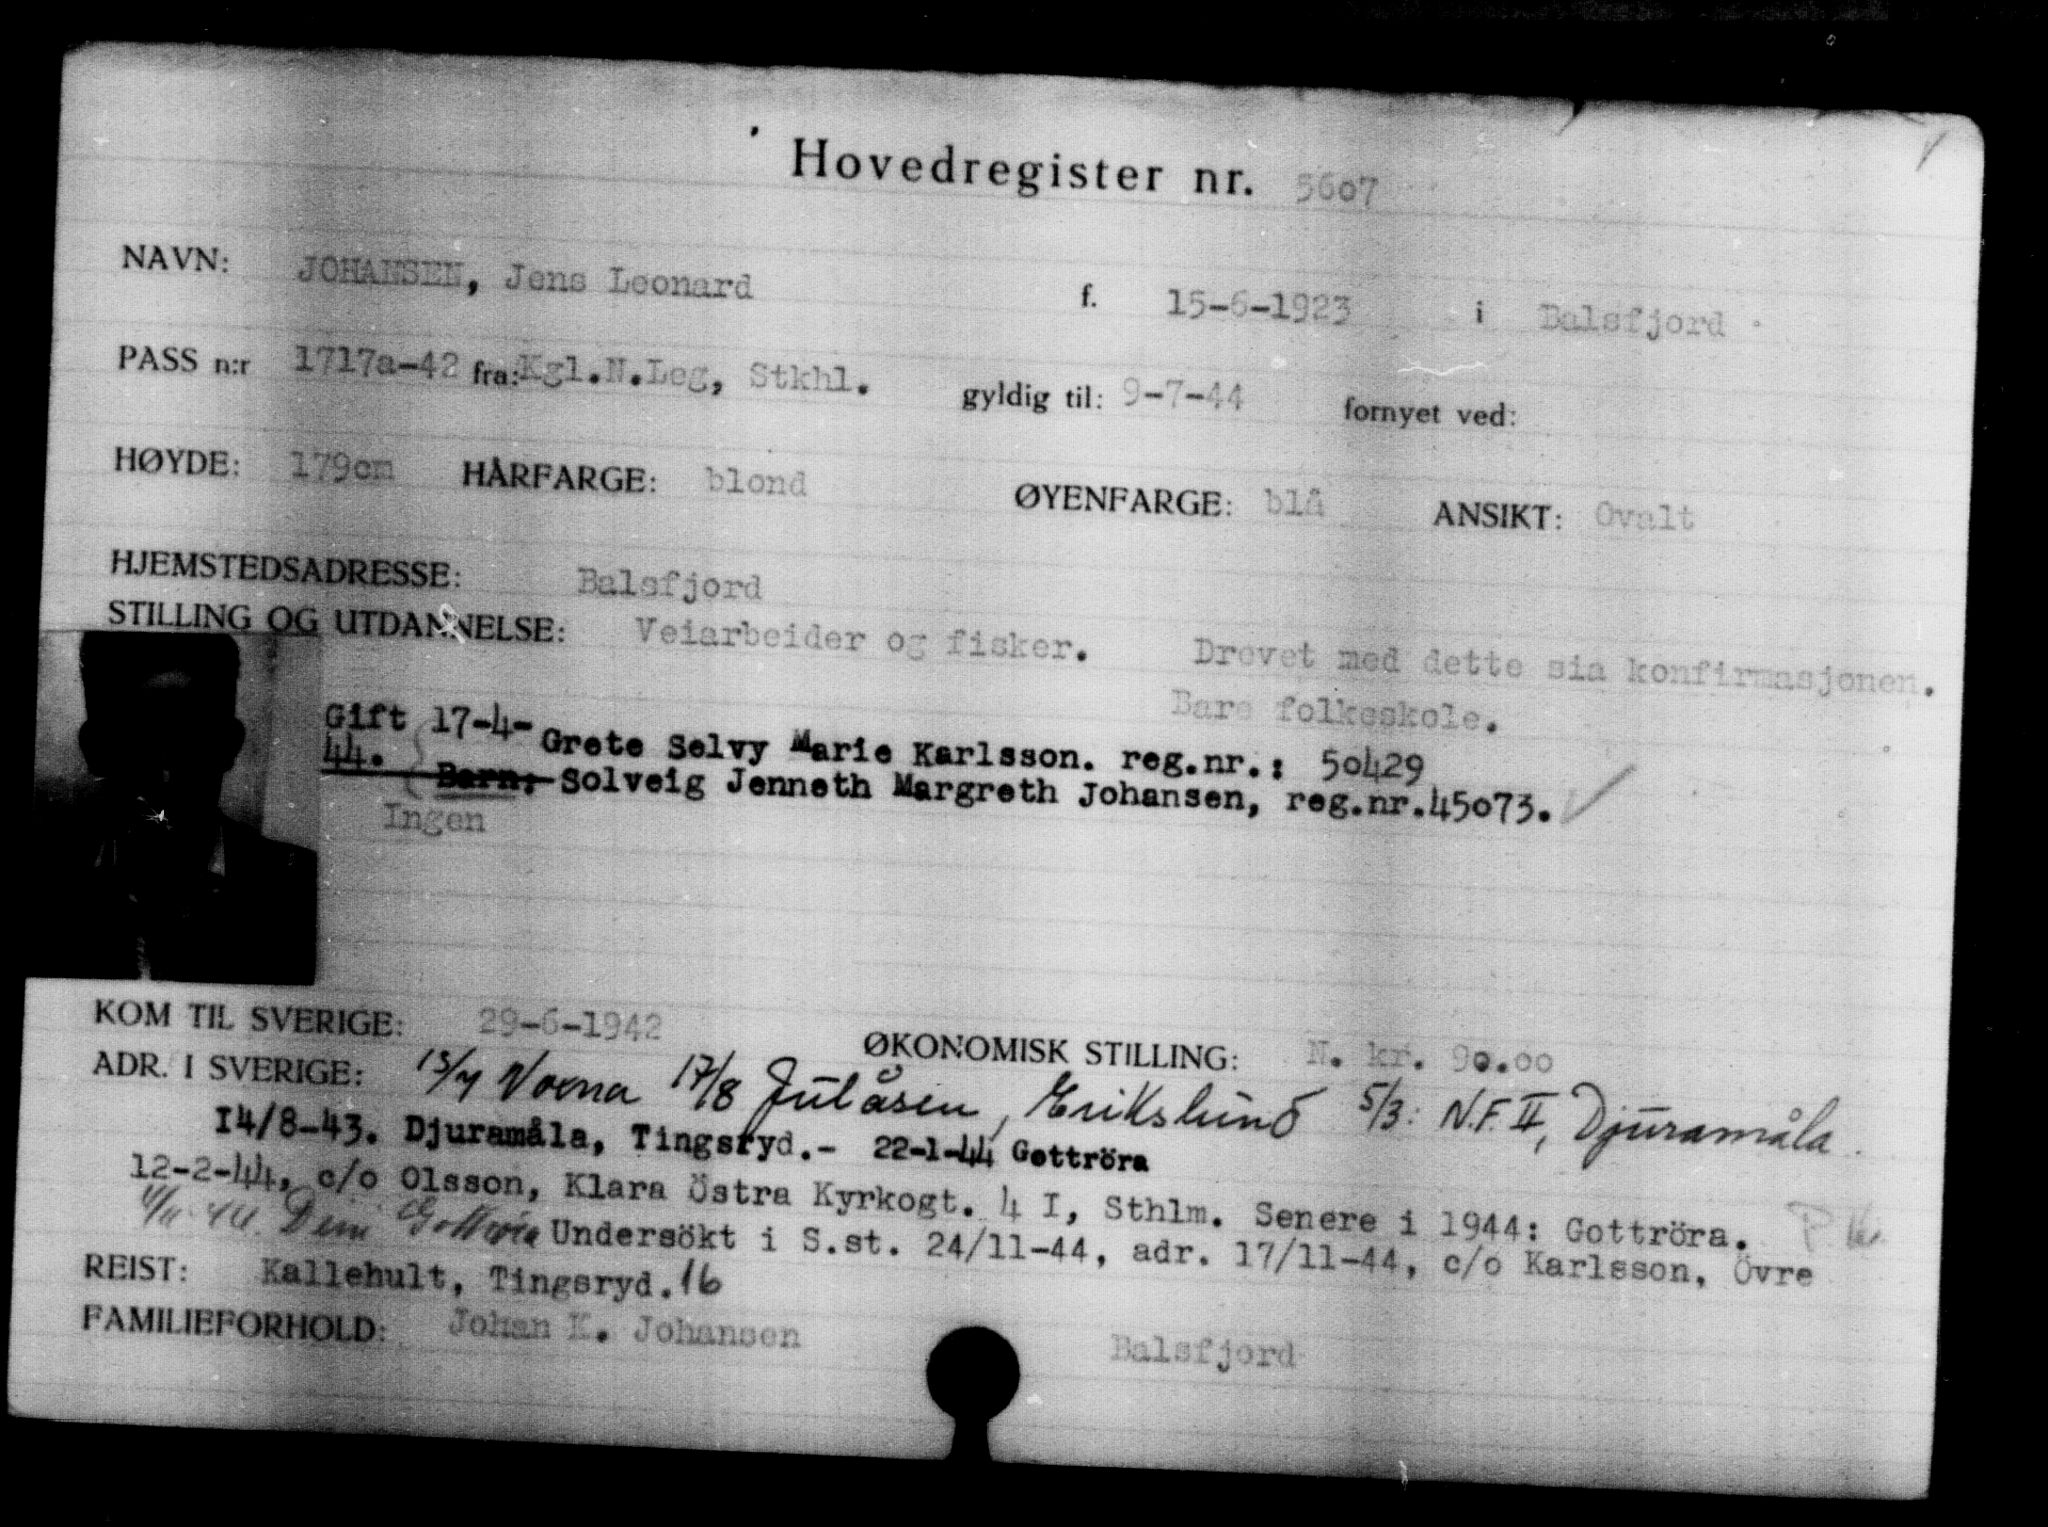 Hovedregister nr. 5607
NAVN: JOHANSEN, Jens Leonard f. 15-6-1923 i Balsfjord
PASS n:r 1717a-42 fra: Kgl.N.Leg, Stkhl. gyldig til: 9-7-44 fornyet ved:
HØYDE: 179cm HÅRFARGE: blond ØYENFARGE: blå ANSIKT: Ovalt
HJEMSTEDSADRESSE: Balsfjord
STILLING OG UTDANNELSE: Veiarbeider og fisker. Drevet med dette sia konfirmasjonen.
Bare folkeskole.
Gift 17-4-44. Grete Selvy Marie Karlsson. reg.nr.: 50429
Barn: Solveig Jenneth Margreth Johansen, reg.nr.45073.
Ingen
KOM TIL SVERIGE: 29-6-1942 ØKONOMISK STILLING: N. kr. 90.00
ADR. I SVERIGE: 13/7 Voxna 17/8 Julåsen, Erikslund 5/3: N.F. II, Djuramåla.
14/8-43. Djuramåla, Tingsryd.- 22-1-44 Gottröra
12-2-44, c/o Olsson, Klara Östra Kyrkogt. 4 I, Sthlm. Senere i 1944: Gottröra.
Gottröra Undersökt i S.st. 24/11-44, adr. 17/11-44, c/o Karlsson, Övre
REIST: Kallehult, Tingsryd. 16
FAMILIEFORHOLD: Johan K. Johansen Balsfjord